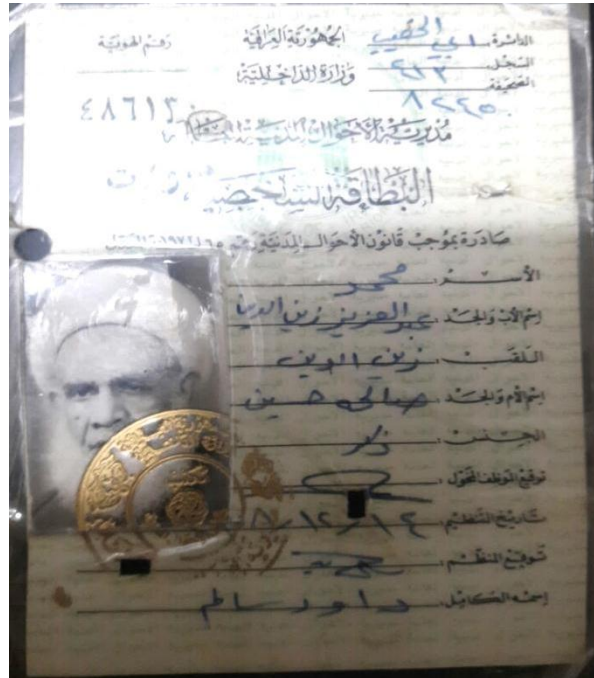 الجمهورية العراقية
وزارة الداخلية
رقم الهوية
الدائرة ابي الخصيب
السجل ٤١٣
الصحيفة ٨٢٤٥٠
مديرية الأحوال المدنية العامة
البطاقة الشخصية
صادرة بموجب قانون الأحوال المدنية رقم ٦٥
الأسم محمد
إسم الأب والجد عبد العزيز زين الدين
اللقب زين الدين
إسم الأم والجد صالحه حسين
الجنس ذكر
توقيع الموظف المخول
تاريخ التنظيم
توقيع المنظم
إسمه الكامل داود سالم